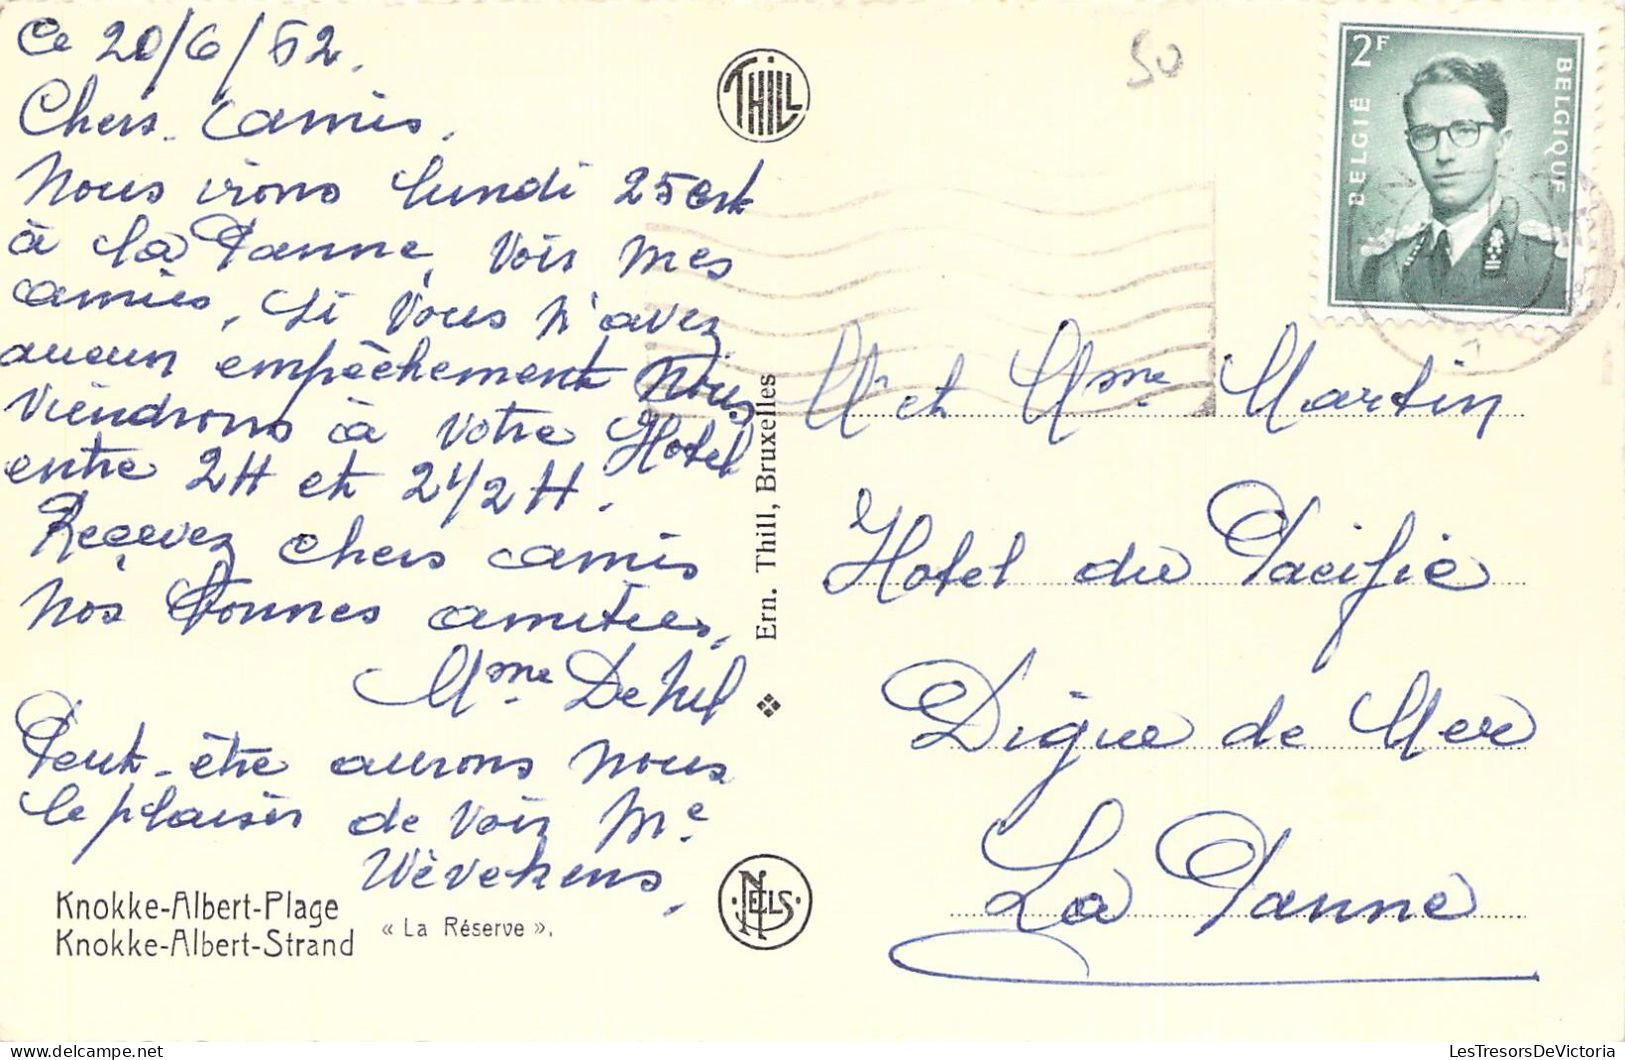 Ce 20/6/62.
Chers amis,
Nous irons lundi 25 ert
à la Panne, voir mes
amies, si vous n'avez
aucun empêchement nous
viendrons à votre Hotel
entre 2H et 2 1/2 H.
Recevez chers amis
nos bonnes amitiées,
Mme
Peut-être aurons nous
le plaisir de voir Me
Wèvekens.
Knokke-Albert-Plage
Knokke-Albert-Strand
« La Réserve ».
THILL
Ern. Thill, Bruxelles
NELS
50
2F
BELGIË
BELGIQUE
Mr et Mme Martin
Hotel du Pacific
Digue de Mer
La Panne
LesTresorsDeVictoria